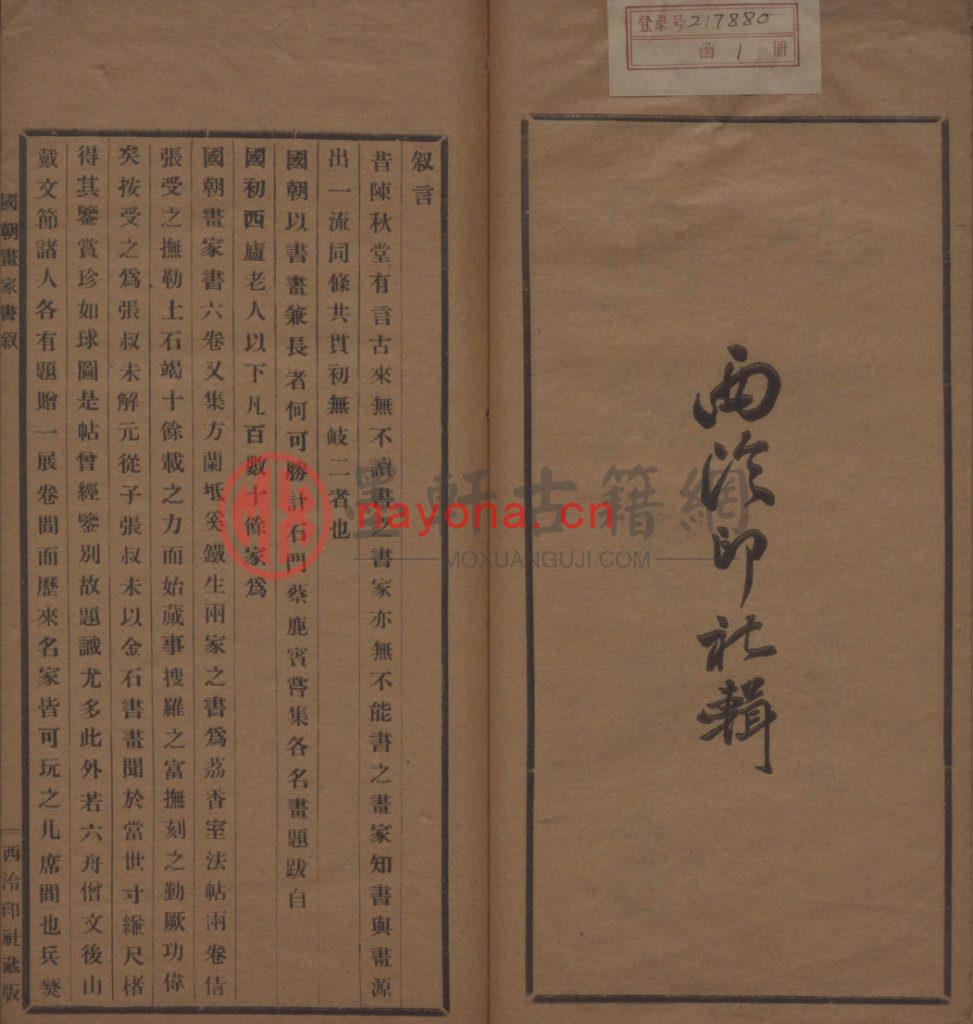 登录号217880
函 1 册
西泠印社輯
叙言
昔陳秋堂有言古來無不讀書之書家亦無不能書之畫家知書與畫源
出一流同條共貫初無岐二者也
國朝以書畫兼長者何可勝計石門蔡鹿賓嘗集各名畫題跋自
國初西廬老人以下凡百數十餘家爲
國朝畫家書六卷又集方蘭坻奚鐵生兩家之書爲荔香室法帖兩卷倩
張受之撫勒上石竭十餘載之力而始蕆事搜羅之富撫刻之勤厥功偉
矣按受之爲張叔未解元從子張叔未以金石書畫聞於當世寸縑尺楮
得其鑒賞珍如球圖是帖曾經鑒別故題識尤多此外若六舟僧文後山
戴文節諸人各有題贈一展卷間而歷來名家皆可玩之几席間也兵燹
國朝畫家書叙
西泠印社藏版
墨軒古籍網
nayona.cn
MOXUANGUJI.COM